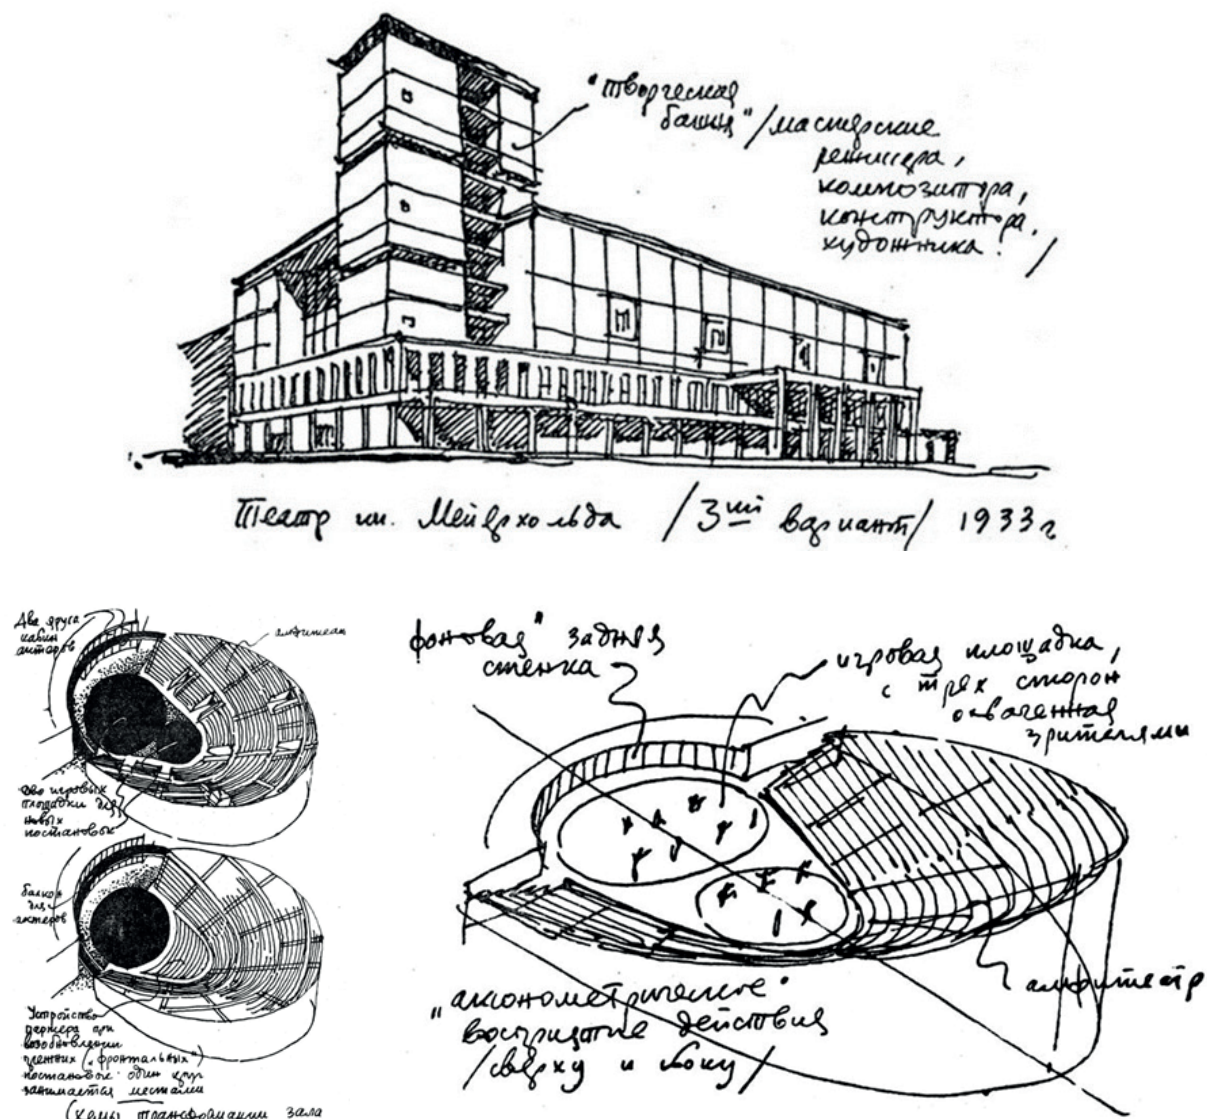 "творческая
башня" / мастерские
режиссера,
композитора,
конструктора,
художника. /
Театр им. Мейерхольда /3ий вариант/ 1933 г
Два яруса
кабин
актеров
амфитеатр
две игровых
площадки для
новых
постановок
балкон
для
актеров
Устройство
партера при
возобновлении
прежних ("фронтальных")
постановок: один круг
занимается местами
Схемы трансформации зала
фоновая" задняя
стенка
игровая площадка,
с трех сторон
охваченная
зрителями
амфитеатр
"аксонометрическое"
восприятие действия
/сверху и сбоку/